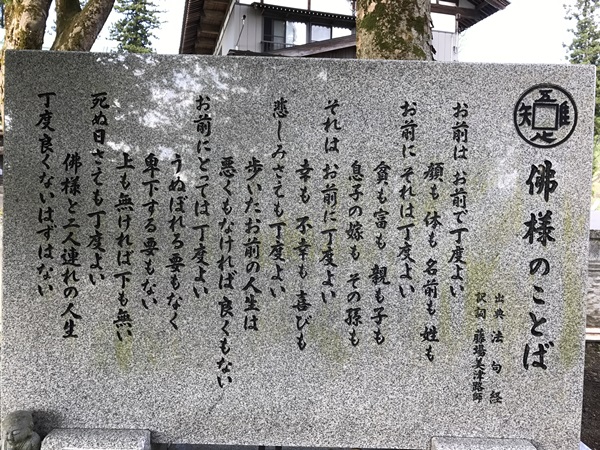 吾唯知足
佛様のことば
出典 法句経
訳詞 藤場美津路師
お前は お前で丁度よい
顔も 体も 名前も 姓も
お前に それは丁度よい
貧も 富も 親も 子も
息子の嫁も その孫も
それは お前に丁度よい
幸も 不幸も 喜びも
悲しみさえも丁度よい
歩いたお前の人生は
悪くもなければ 良くもない
お前にとっては丁度よい
うぬぼれる要もなく
卑下する要もない
上も無ければ下も無い
死ぬ日さえも丁度よい
佛様と二人連れの人生
丁度良くないはずはない